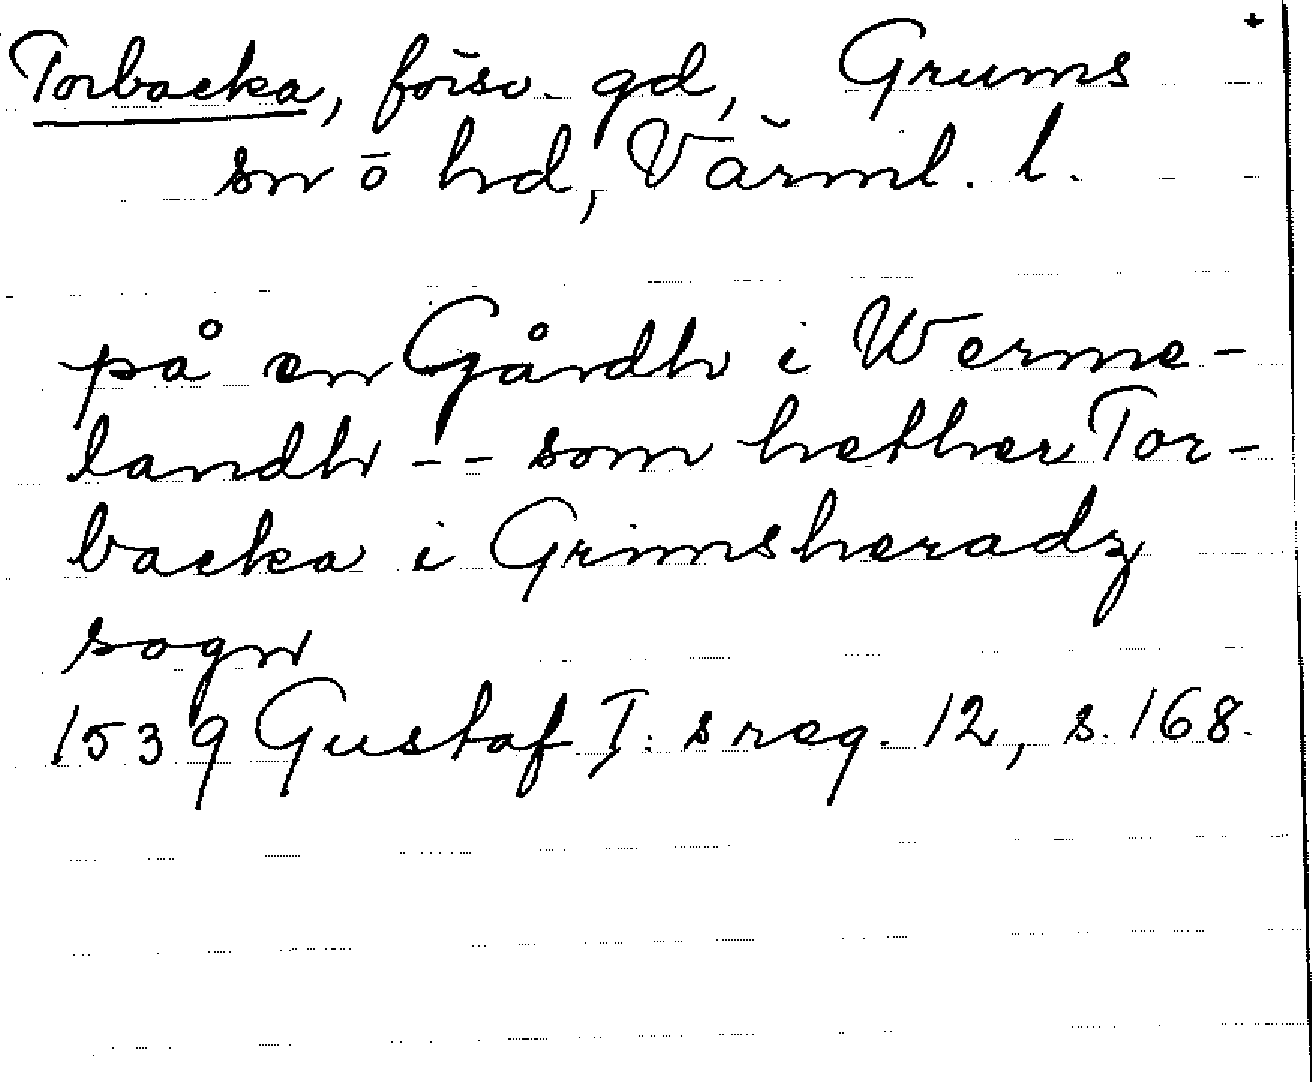 Torbacka, försv. gd, Grums
sn o hd, Värml. l.
på en Gårdh i Werme-
landh -- som hether Tor-
backa i Grimsheradz
sogn
1539 Gustaf I:s reg. 12, s. 168.